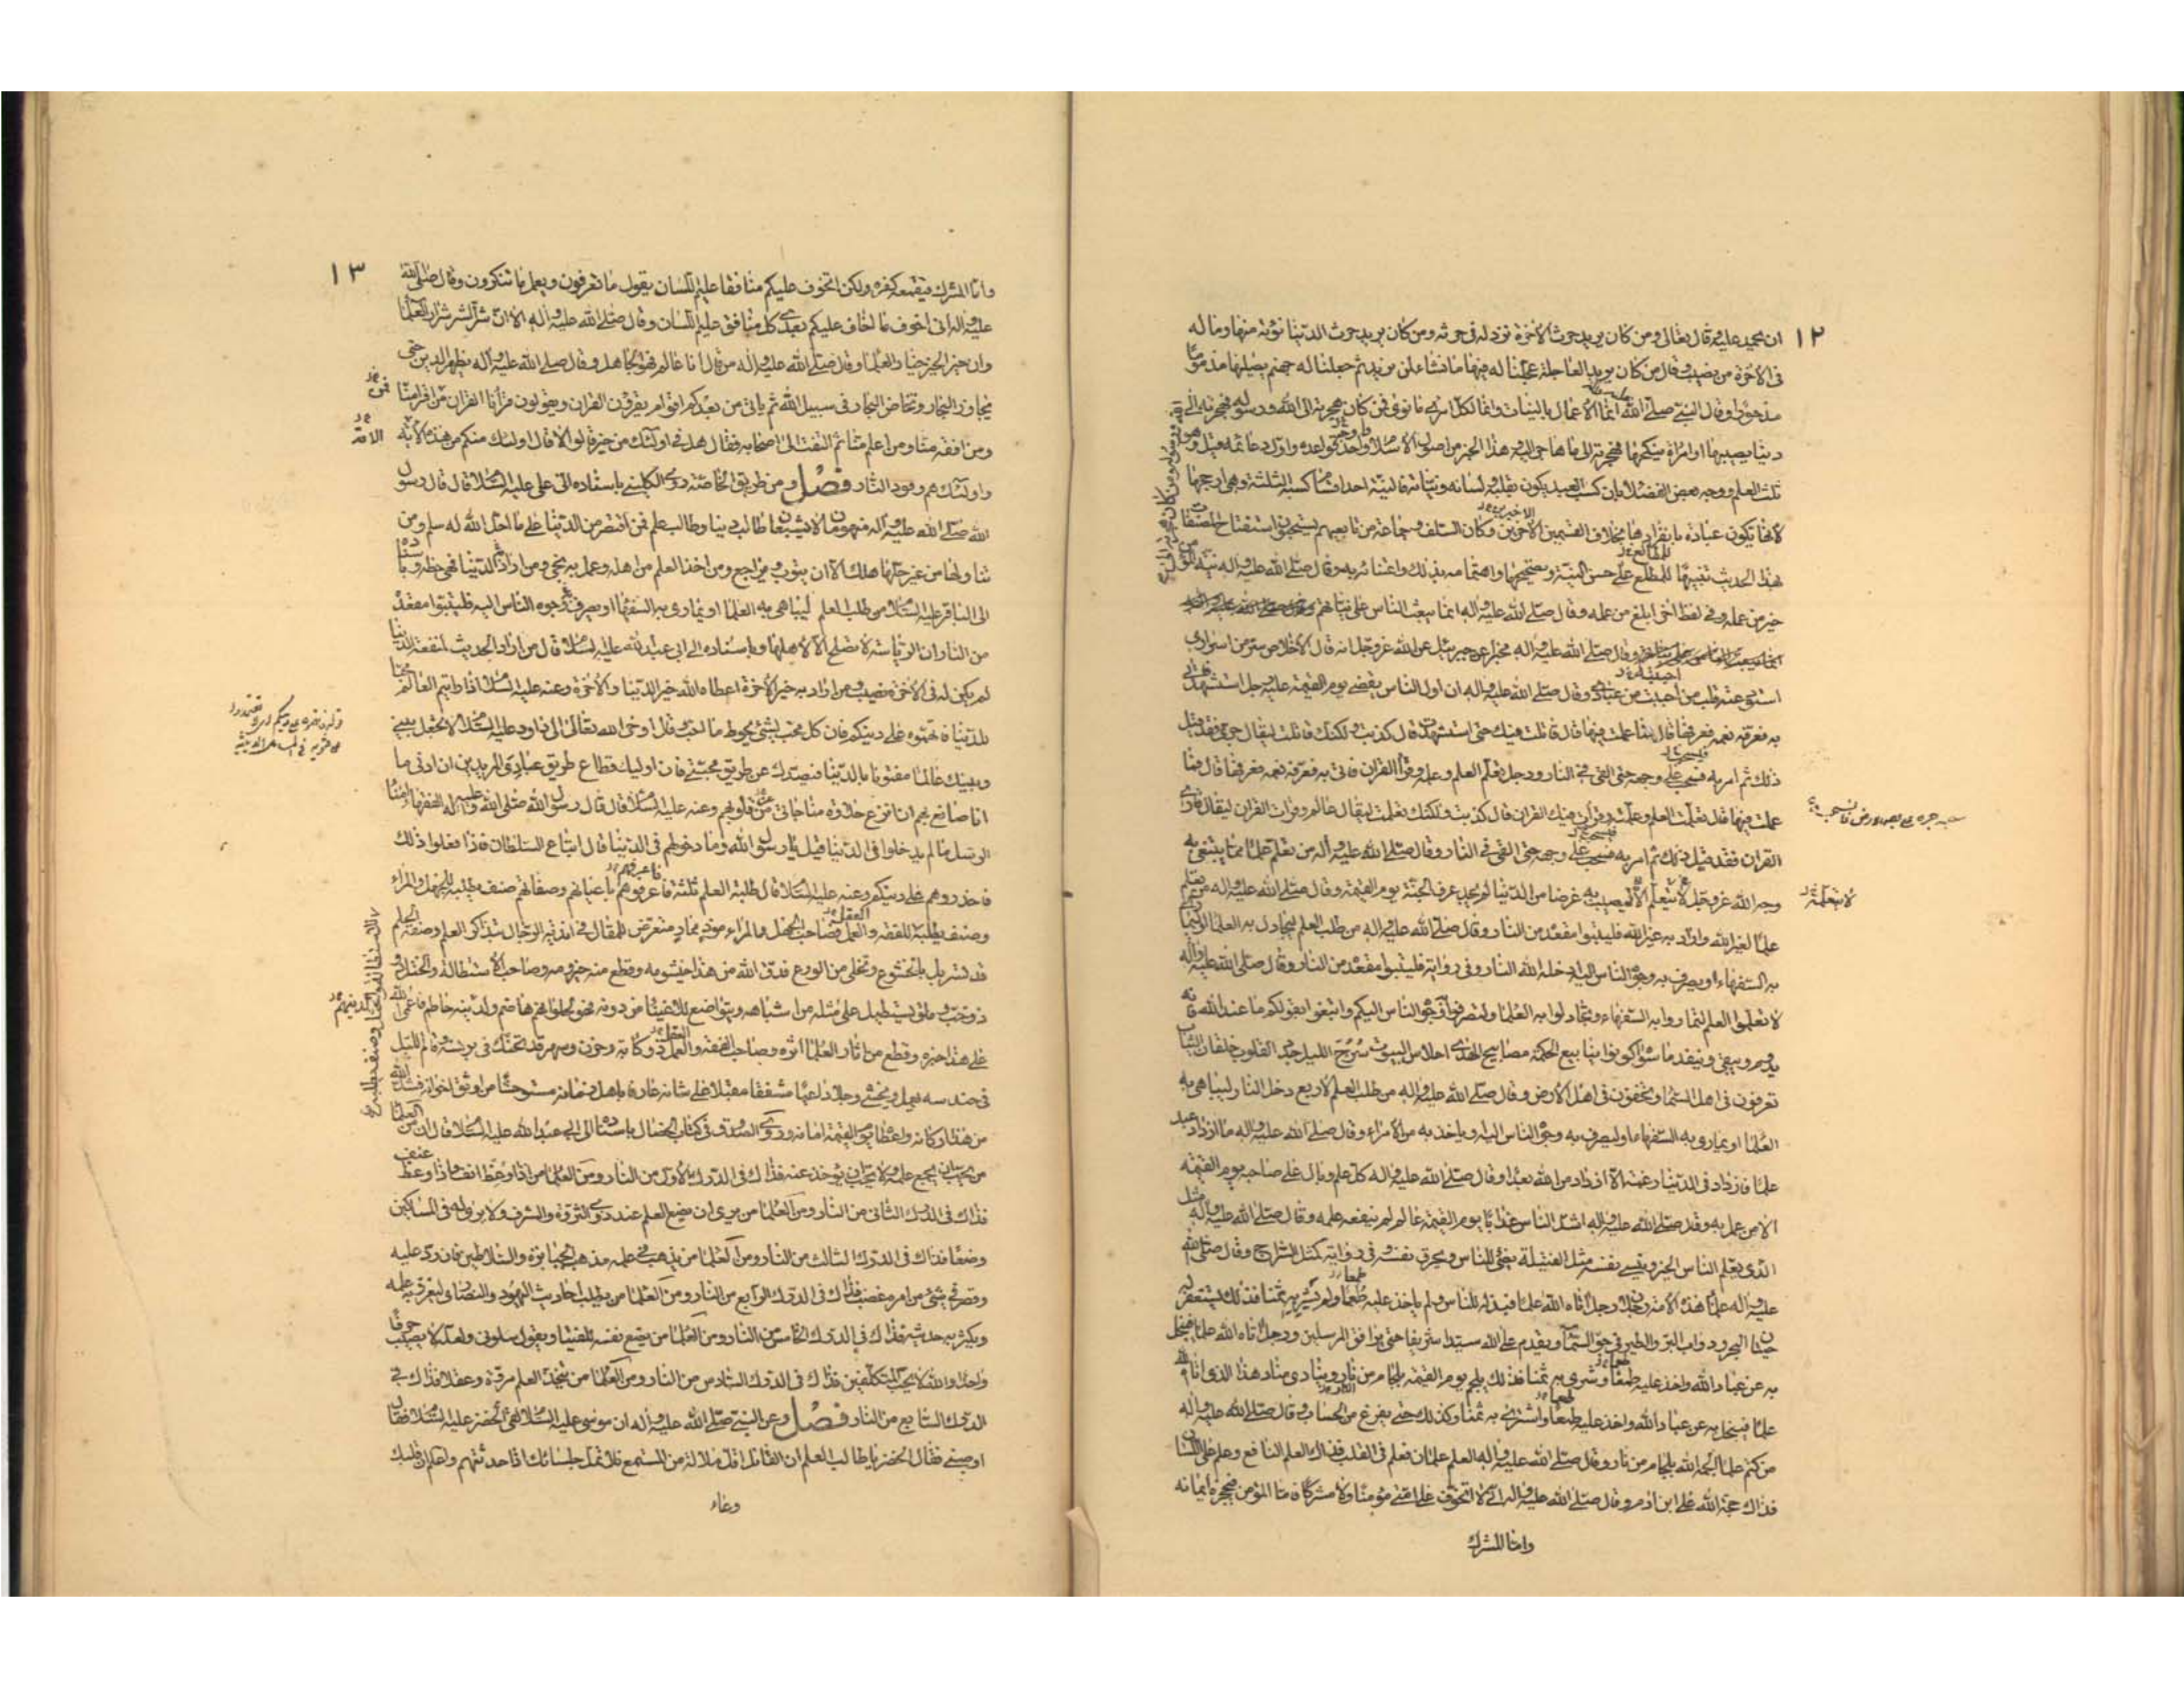 ١٢
ان يحيد عليه قال تعالى ومن كان يريد حرث الآخرة نزد له في حرثه ومن كان يريد حرث الدنيا نؤته منها وما له
في الآخرة من نصيب وقال من كان يريد العاجلة عجلنا له فيها ما نشاء لمن نريد ثم جعلنا له جهنم يصليها مذموما
مدحورا وقال النبي صلى الله عليه وآله انما الاعمال بالنيات وانما لكل امرئ ما نوى فمن كان هجرته الى الله ورسوله فهجرته الى
الله ورسوله ومن كان هجرته الى
دنيا يصيبها او امرأة ينكحها فهجرته الى ما هاجر اليه هذا الخبر من اصول الاسلام واحد قواعده واول دعائمه قيل وهو
ثلث العلم ووجهه بعض الفضلاء بان كسب العبد يكون بقلبه ولسانه وبنانه فالنية احد اقسام كسبه الثلثة وهي ارجحها
لانها تكون عبادة بانفرادها بخلاف القسمين الآخرين وكان السلف وجماعة من تابعيهم يستحبون استفتاح المصنفات
بهذا الحديث تنبيها للمطلع على حسن النية وتصحيحها واهتمامه بذلك واعتنائه به وقال صلى الله عليه وآله نية المؤمن
خير من عمله وفي لفظ اخر ابلغ من عمله وقال صلى الله عليه وآله انما يبعث الناس على نياتهم
وقال صلى الله عليه وآله مخبرا عن جبرئيل عن الله عز وجل انه قال الاخلاص سر من اسراري
استودعته قلب من احببت من عبادي وقال صلى الله عليه وآله ان اول الناس يقضى يوم القيمة عليه رجل استشهد فاتى
به فعرفه نعمه فعرفها قال فما عملت فيها قال قاتلت فيك حتى استشهدت قال كذبت ولكنك قاتلت ليقال جرئ فقد قيل
ذلك ثم امر به فسحب على وجهه حتى القي في النار ورجل تعلم العلم وعلمه وقرأ القرآن فاتى به فعرفه نعمه فعرفها قال فما
عملت فيها قال تعلمت العلم وعلمته وقرأت فيك القرآن قال كذبت ولكنك تعلمت ليقال عالم وقرأت القرآن ليقال قارئ
القرآن فقد قيل ذلك ثم امر به فسحب على وجهه حتى القي في النار وقال صلى الله عليه وآله من تعلم علما مما يبتغى به
وجه الله عز وجل لا يتعلمه الا ليصيب به غرضا من الدنيا لم يجد عرف الجنة يوم القيمة وقال صلى الله عليه وآله من تعلم
لا يتعلمه
علما لغير الله واراد به غير الله فليتبوأ مقعده من النار وقال صلى الله عليه وآله من طلب العلم ليجادل به العلماء او ليماري
به السفهاء او يصرف به وجوه الناس اليه ادخله الله النار وفي رواية فليتبوأ مقعده من النار وقال صلى الله عليه وآله
لا تعلموا العلم لتماروا به السفهاء وتجادلوا به العلماء ولتصرفوا وجوه الناس اليكم وابتغوا بقولكم ما عند الله فانه
يدوم ويبقى وينفد ما سواه كونوا ينابيع الحكمة مصابيح الهدى احلاس البيوت سرج الليل جدد القلوب خلقان الثياب
تعرفون في اهل السماء وتخفون في اهل الارض وقال صلى الله عليه وآله من طلب العلم لاربع دخل النار ليباهي به
العلماء او يماري به السفهاء او ليصرف به وجوه الناس اليه وياخذ به من الامراء وقال صلى الله عليه وآله ما ازداد عبد
علما فازداد في الدنيا رغبة الا ازداد من الله بعدا وقال صلى الله عليه وآله كل علم وبال على صاحبه يوم القيمة
الا من عمل به وقال صلى الله عليه وآله اشد الناس عذابا يوم القيمة عالم لم ينفعه علمه وقال صلى الله عليه وآله مثل
الذي يعلم الناس الخير وينسى نفسه مثل الفتيلة يضئ للناس ويحرق نفسه وفي رواية كمثل السراج وقال صلى الله
عليه وآله علماء هذه الامة رجلان رجل اتاه الله علما فبذله للناس ولم ياخذ عليه طمعا ولم يشتر به ثمنا فذلك يستغفر له
حيتان البحر ودواب البر والطير في جو السماء ويقدم على الله سيدا شريفا حتى يرافق المرسلين ورجل اتاه الله علما فبخل
به عن عباد الله واخذ عليه طمعا وشرى به ثمنا فذلك يلجم يوم القيمة بلجام من نار وينادي مناد هذا الذي اتاه الله
علما فبخل به عن عباد الله واخذ عليه طمعا واشترى به ثمنا وكذلك حتى يفرغ من الحساب وقال صلى الله عليه وآله
من كتم علما الجمه الله بلجام من نار وقال صلى الله عليه وآله العلم علمان فعلم في القلب فذاك العلم النافع وعلم على اللسان
فذاك حجة الله على ابن آدم وقال صلى الله عليه وآله اني لا اتخوف على امتي مؤمنا ولا مشركا فاما المؤمن فيحجزه ايمانه
واما المشرك
١٣
واما المشرك فيقمعه كفره ولكن اتخوف عليكم منافقا عليم اللسان يقول ما تعرفون ويعمل ما تنكرون وقال صلى الله
عليه وآله ان اخوف ما اخاف عليكم بعدي كل منافق عليم اللسان وقال صلى الله عليه وآله الا ان شر الشر شرار العلماء
وان خير الخير خيار العلماء وقال صلى الله عليه وآله من قال انا عالم فهو جاهل وقال صلى الله عليه وآله يظهر الدين حتى
يجاوز البحار وتخاض البحار في سبيل الله ثم ياتي من بعدكم اقوام يقرؤن القرآن ويقولون قرأنا القرآن من اقرأ منا
ومن افقه منا ومن اعلم منا ثم التفت الى اصحابه فقال هل في اولئك من خير قالوا لا قال اولئك منكم من هذه الامة
الامة
واولئك هم وقود النار فصل ومن طريق الخاصة روى الكليني باسناده الى علي عليه السلام قال قال رسول
الله صلى الله عليه وآله منهومان لا يشبعان طالب دنيا وطالب علم فمن اقتصر من الدنيا على ما احل الله له سلم ومن
تناولها من غير حلها هلك الا ان يتوب ويراجع ومن اخذ العلم من اهله وعمل به نجى ومن اراد به الدنيا فهي حظه وباسناده
الى الباقر عليه السلام من طلب العلم ليباهي به العلماء او يماري به السفهاء او يصرف به وجوه الناس اليه فليتبوأ مقعده
من النار ان الرياسة لا تصلح الا لاهلها وباسناده الى ابي عبد الله عليه السلام قال من اراد الحديث لمنفعة الدنيا
لم يكن له في الآخرة نصيب ومن اراد به خير الآخرة اعطاه الله خير الدنيا والآخرة وعنه عليه السلام اذا رايتم العالم محبا
للدنيا فاتهموه على دينكم فان كل محب لشئ يحوط ما احب وقال اوحى الله تعالى الى داود عليه السلام لا تجعل بيني
وبينك عالما مفتونا بالدنيا فيصدك عن طريق محبتي فان اولئك قطاع طريق عبادي المريدين ان ادنى ما
انا صانع بهم ان انزع حلاوة مناجاتي من قلوبهم وعنه عليه السلام قال قال رسول الله صلى الله عليه وآله الفقهاء امناء
الرسل ما لم يدخلوا في الدنيا قيل يا رسول الله وما دخولهم في الدنيا قال اتباع السلطان فاذا فعلوا ذلك
فاحذروهم على دينكم وعنه عليه السلام قال طلبة العلم ثلثة فاعرفوهم باعيانهم وصفاتهم صنف يطلبه للجهل والمراء
وصنف يطلبه للاستطالة والختل
وصنف يطلبه للفقه والعقل فصاحب الجهل والمراء موذ ممار متعرض للمقال في اندية الرجال بتذاكر العلم وصفة الحلم
قد تسربل بالخشوع وتخلى من الورع فدق الله من هذا خيشومه وقطع منه حيزومه وصاحب الاستطالة والختل
ذو خب وملق يستطيل على مثله من اشباهه ويتواضع للاغنياء من دونه فهو لحلوائهم هاضم ولدينه حاطم فاعمى الله
على هذا خبره وقطع من آثار العلماء اثره وصاحب الفقه والعقل ذو كآبة وحزن وسهر قد تحنك في برنسه وقام الليل
في حندسه يعمل ويخشى وجلا داعيا مشفقا مقبلا على شانه عارفا باهل زمانه مستوحشا من اوثق اخوانه فشد الله
من هذا اركانه واعطاه يوم القيمة امانه وروى الصدوق في كتاب الخصال باسناده الى ابي عبد الله عليه السلام قال ان من العلماء
من يحب ان يجمع علمه ولا يحب ان يوخذ عنه فذاك في الدرك الاول من النار ومن العلماء من اذا وعظ انف واذا وعظ عنف
فذاك في الدرك الثاني من النار ومن العلماء من يرى ان يضع العلم عند ذوي الثروة والشرف ولا يرى له في المساكين
وضعا فذاك في الدرك الثالث من النار ومن العلماء من يذهب في علمه مذهب الجبابرة والسلاطين فان رد عليه
وقصر في شئ من امره غضب فذاك في الدرك الرابع من النار ومن العلماء من يطلب احاديث اليهود والنصارى ليغزر به علمه
ويكثر به حديثه فذاك في الدرك الخامس من النار ومن العلماء من يضع نفسه للفتيا ويقول سلوني ولعله لا يصيب حرفا
واحدا والله لا يحب المتكلفين فذاك في الدرك السادس من النار ومن العلماء من يتخذ العلم مروة وعقلا فذاك في
الدرك السابع من النار فصل وعن النبي صلى الله عليه وآله ان موسى عليه السلام لقي الخضر عليه السلام فقال
اوصني فقال الخضر يا طالب العلم ان القائل اقل ملالة من المستمع فلا تمل جلساءك اذا حدثتهم واعلم ان قلبك
وعاء